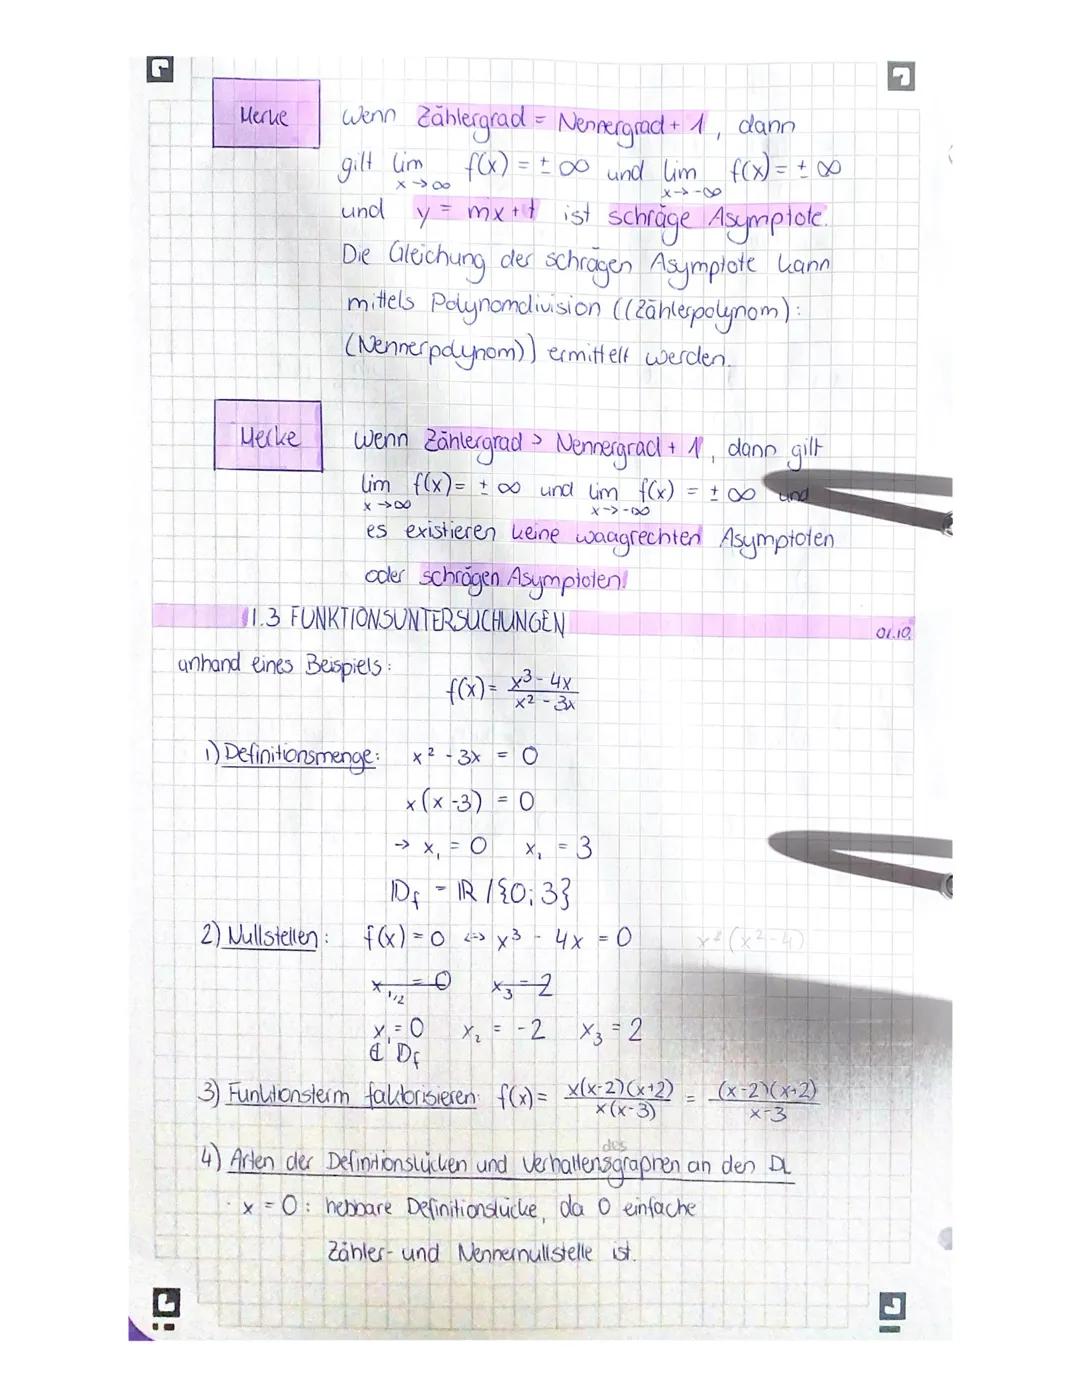 Merke
Wenn Zählergrad = Nennergrad + 1, dann
gilt lim x→∞ f(x) = ± ∞ und lim x→-∞ f(x) = ± ∞
und y = mx + t ist schräge Asymptote.
Die Gleichung der schrägen Asymptote kann
mittels Polynomdivision ((Zählerpolynom):
(Nennerpolynom)) ermittelt werden.
Merke
Wenn Zählergrad > Nennergrad + 1, dann gilt
lim x→∞ f(x) = ± ∞ und lim x→-∞ f(x) = ± ∞ und
es existieren keine waagrechten Asymptoten
oder schrägen Asymptoten!
1.3 FUNKTIONSUNTERSUCHUNGEN 01.10.
anhand eines Beispiels:
f(x) = (x³ - 4x)/(x² - 3x)
1) Definitionsmenge: x² - 3x = 0
x(x-3) = 0
→ x₁ = 0 x₁ = 3
Df = ℝ / {0; 3}
2) Nullstellen: f(x) = 0 ↔ x³ - 4x = 0
x₁/₂ = 0 x₃ = 2
x₁ = 0 x₂ = -2 x₃ = 2
∉ Df
3) Funktionsterm faktorisieren: f(x) = x(x-2)(x+2)/x(x-3) = (x-2)(x+2)/x-3
des
4) Arten der Definitionslücken und Verhaltensgraphen an den DL
· x = 0: hebbare Definitionslücke, da 0 einfache
Zähler- und Nennernullstelle ist.